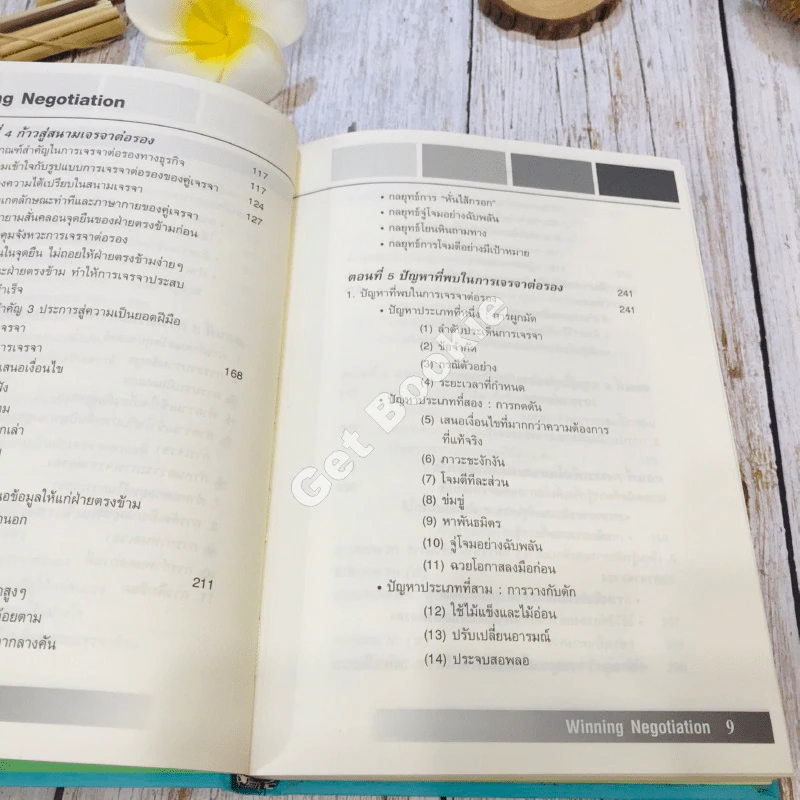 Negotiation
4 ก้าวสู่สนามเจรจาต่อรอง
สำคัญในการเจรจาต่อรองทางธุรกิจ 117
เข้าใจกับรูปแบบการเจรจาต่อรองของคู่เจรจา 117
ความได้เปรียบในสนามเจรจา 124
ลักษณะท่าทีและภาษากายของคู่เจรจา 127
สั่นคลอนจุดยืนของฝ่ายตรงข้ามก่อน
คุมจังหวะการเจรจาต่อรอง
ในจุดยืน ไม่ถอยให้ฝ่ายตรงข้ามง่ายๆ
ฝ่ายตรงข้าม ทำให้การเจรจาประสบ
สำคัญ 3 ประการสู่ความเป็นยอดฝีมือ
เจรจา
การเจรจา
เสนอเงื่อนไข 168
ข้อมูลให้แก่ฝ่ายตรงข้าม
211
สูงๆ
กลางคัน
• กลยุทธ์การ "หั่นไส้กรอก"
• กลยุทธ์จู่โจมอย่างฉับพลัน
• กลยุทธ์โยนหินถามทาง
• กลยุทธ์การโจมตีอย่างมีเป้าหมาย
ตอนที่ 5 ปัญหาที่พบในการเจรจาต่อรอง 241
1. ปัญหาที่พบในการเจรจาต่อรอง 241
• ปัญหาประเภทที่หนึ่ง : การผูกมัด
(1) ลำดับประเด็นการเจรจา
(2) ข้อจำกัด
(3) กรณีตัวอย่าง
(4) ระยะเวลาที่กำหนด
• ปัญหาประเภทที่สอง : การกดดัน
(5) เสนอเงื่อนไขที่มากกว่าความต้องการ
ที่แท้จริง
(6) ภาวะชะงักงัน
(7) โจมตีทีละส่วน
(8) ข่มขู่
(9) หาพันธมิตร
(10) จู่โจมอย่างฉับพลัน
(11) ฉวยโอกาสลงมือก่อน
• ปัญหาประเภทที่สาม : การวางกับดัก
(12) ใช้ไม้แข็งและไม้อ่อน
(13) ปรับเปลี่ยนอารมณ์
(14) ประจบสอพลอ
Winning Negotiation 9
Get Bookie